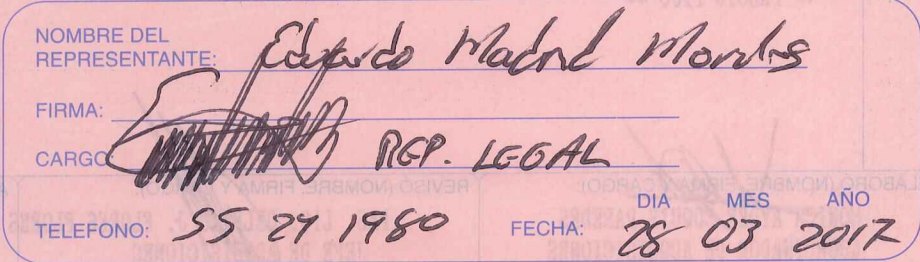 NOMBRE DEL
REPRESENTANTE: Eduardo Madrid Morales
FIRMA:
CARGO REP. LEGAL
DIA MES AÑO
TELEFONO: 55 24 1980 FECHA: 28 03 2017